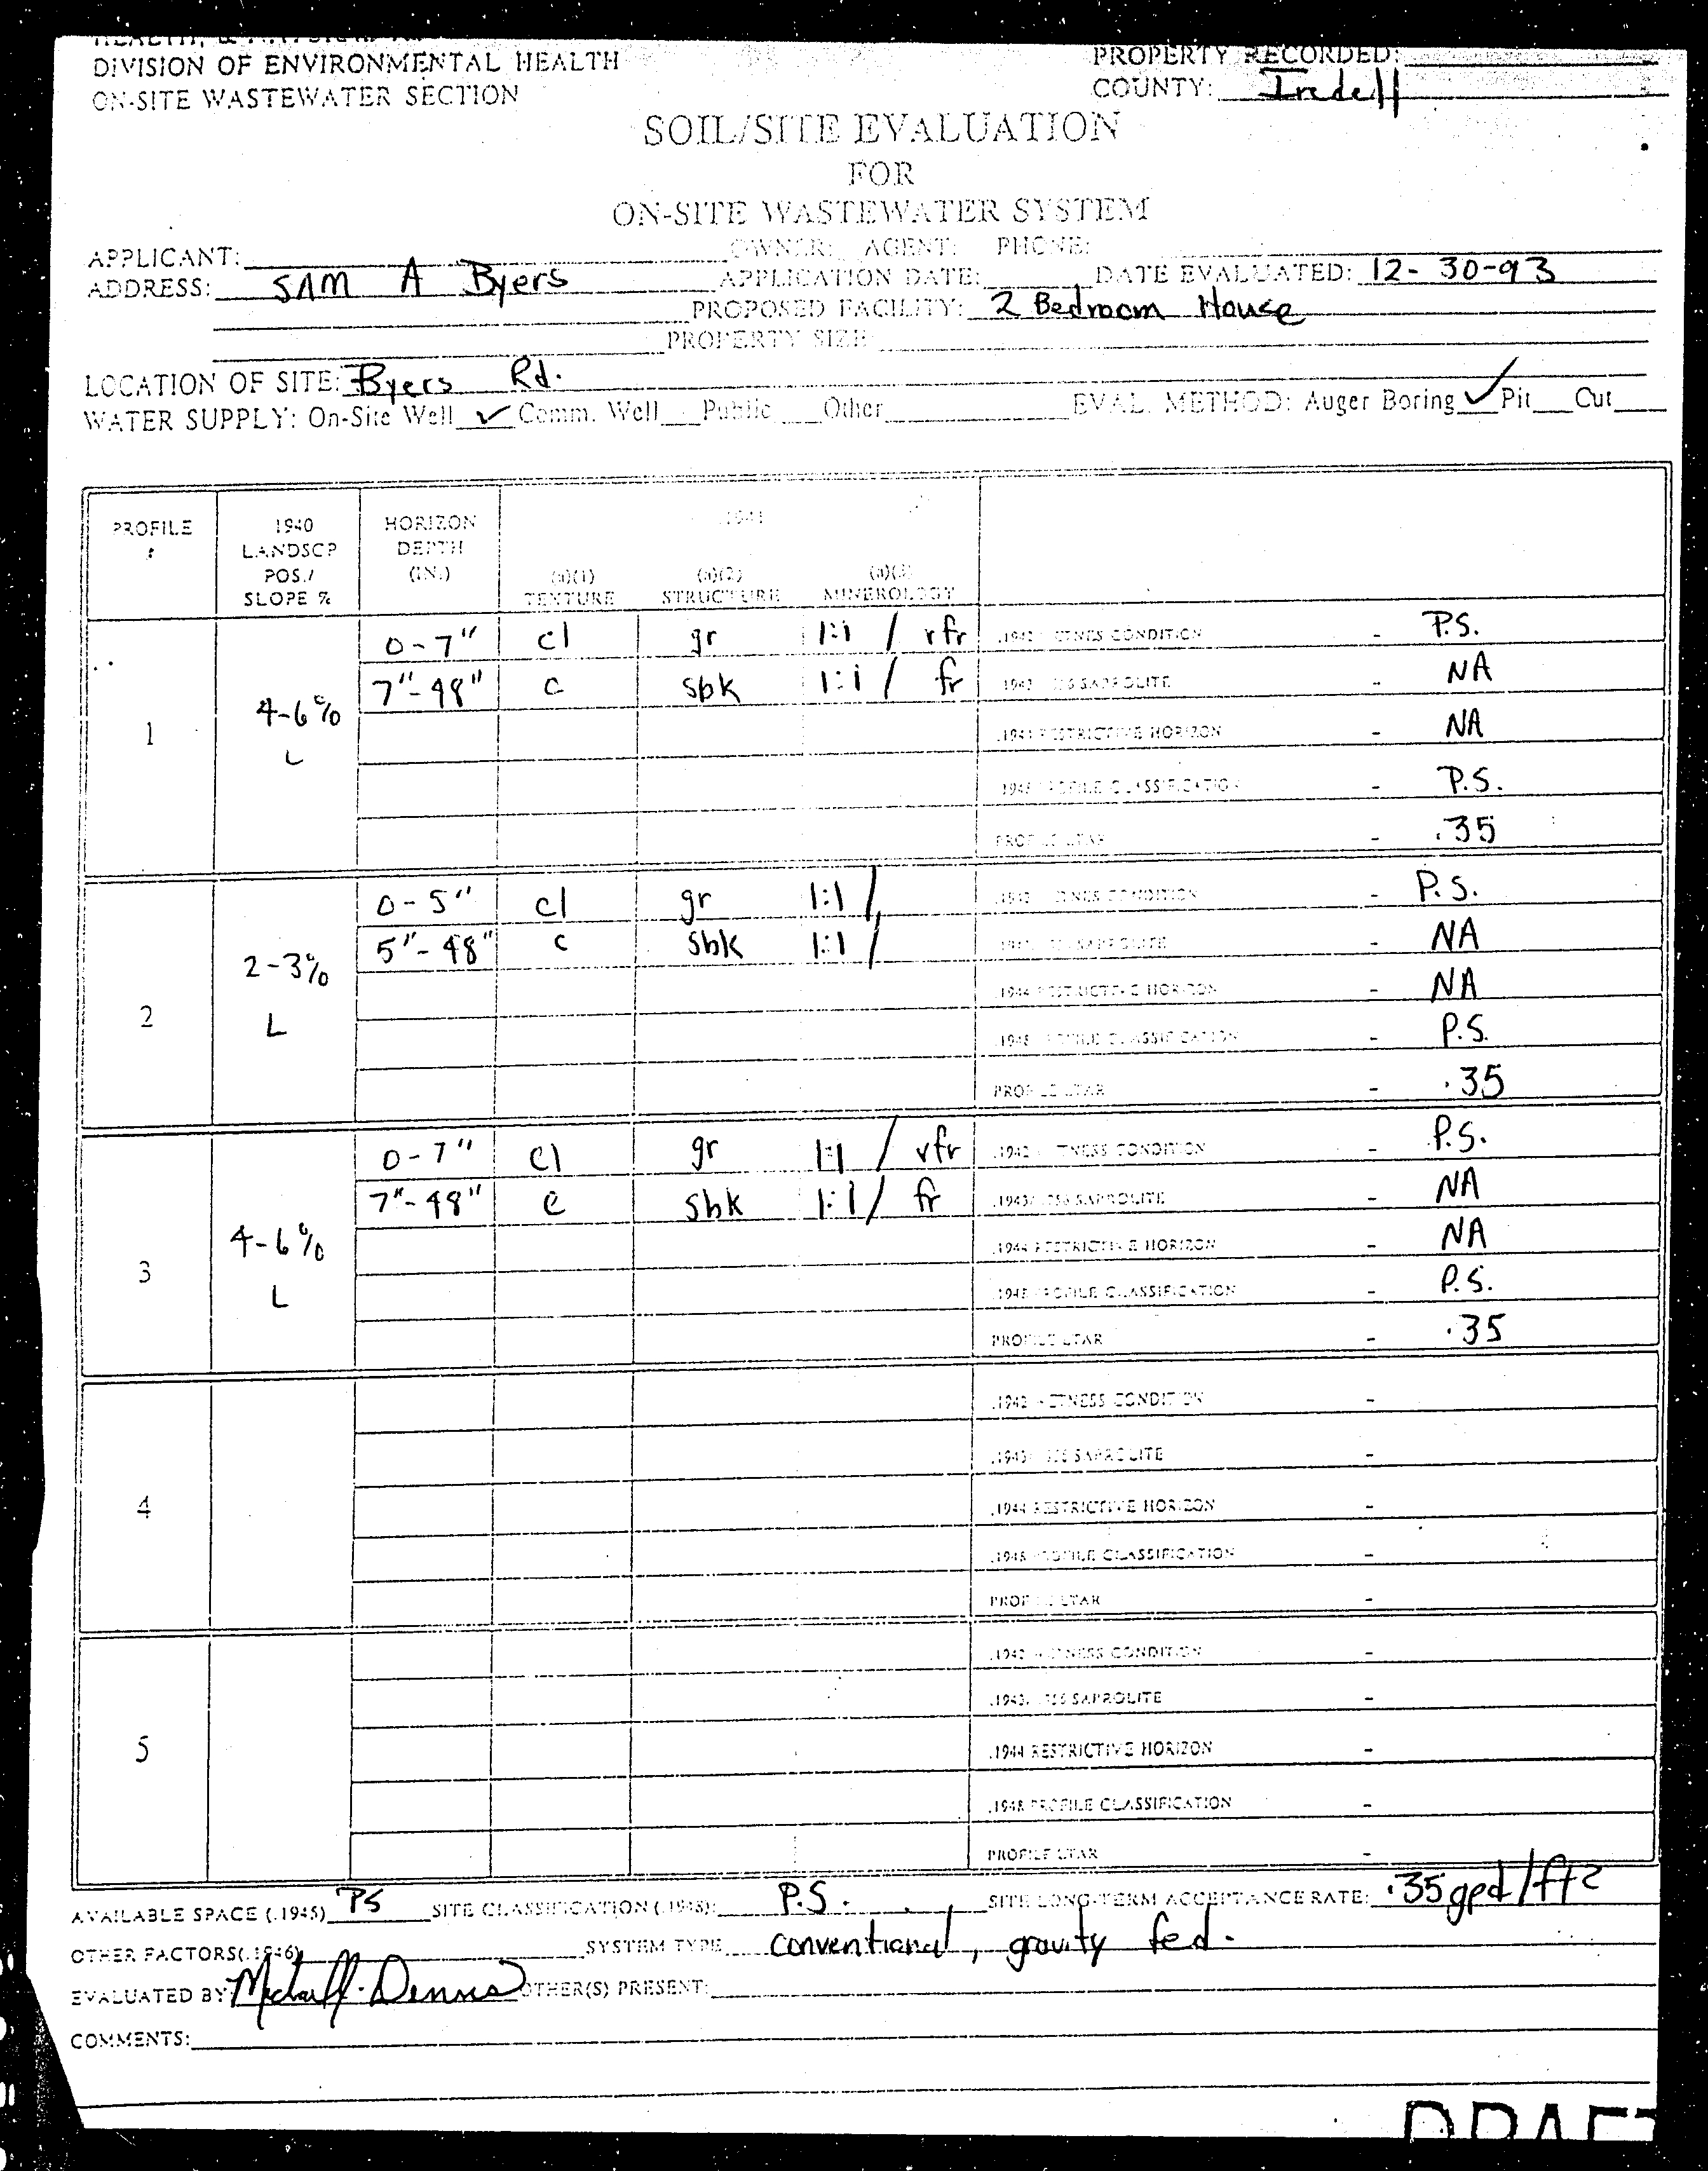 DIVISION OF ENVIRONMENTAL HEALTH
ON-SITE WASTEWATER SECTION
PROPERTY RECORDED:
COUNTY: Iredell
SOIL/SITE EVALUATION
FOR
ON-SITE WASTEWATER SYSTEM
APPLICANT: OWNER: AGENT: PHONE:
ADDRESS: SAM A Byers APPLICATION DATE: DATE EVALUATED: 12-30-93
PROPOSED FACILITY: 2 Bedroom House
PROPERTY SIZE:
LOCATION OF SITE: Byers Rd.
WATER SUPPLY: On-Site Well ✓ Comm. Well Public Other EVAL. METHOD: Auger Boring ✓ Pit Cut
PROFILE #
1940 LANDSCP POS./ SLOPE %
HORIZON DEPTH (IN.)
.1941
(a)(1) TEXTURE
(a)(2) STRUCTURE
(a)(3) MINEROLOGY
1
4-6% L
0-7" cl gr 1:1 / vfr
7"-48" c sbk 1:1 / fr
.1942 WETNESS CONDITION - P.S.
SAPROLITE - NA
.1944 RESTRICTIVE HORIZON - NA
.1948 PROFILE CLASSIFICATION - P.S.
PROFILE LTAR - .35
2
2-3% L
0-5" cl gr 1:1 /
5"-48" c sbk 1:1 /
.1942 WETNESS CONDITION - P.S.
SAPROLITE - NA
.1944 RESTRICTIVE HORIZON - NA
.1948 PROFILE CLASSIFICATION - P.S.
PROFILE LTAR - .35
3
4-6% L
0-7" cl gr 1:1 / vfr
7"-48" c sbk 1:1 / fr
.1942 WETNESS CONDITION - P.S.
.1943/.1956 SAPROLITE - NA
.1944 RESTRICTIVE HORIZON - NA
.1948 PROFILE CLASSIFICATION - P.S.
PROFILE LTAR - .35
4
.1942 WETNESS CONDITION -
.1943/.1956 SAPROLITE -
.1944 RESTRICTIVE HORIZON -
.1948 PROFILE CLASSIFICATION -
PROFILE LTAR -
5
.1942 WETNESS CONDITION -
.1943/.1956 SAPROLITE -
.1944 RESTRICTIVE HORIZON -
.1948 PROFILE CLASSIFICATION -
PROFILE LTAR -
AVAILABLE SPACE (.1945) PS SITE CLASSIFICATION (.1948): P.S. SITE LONG-TERM ACCEPTANCE RATE: .35 gpd/ft2
OTHER FACTORS(.1946) SYSTEM TYPE conventional, gravity fed.
EVALUATED BY Dennis OTHER(S) PRESENT:
COMMENTS:
DRAFT